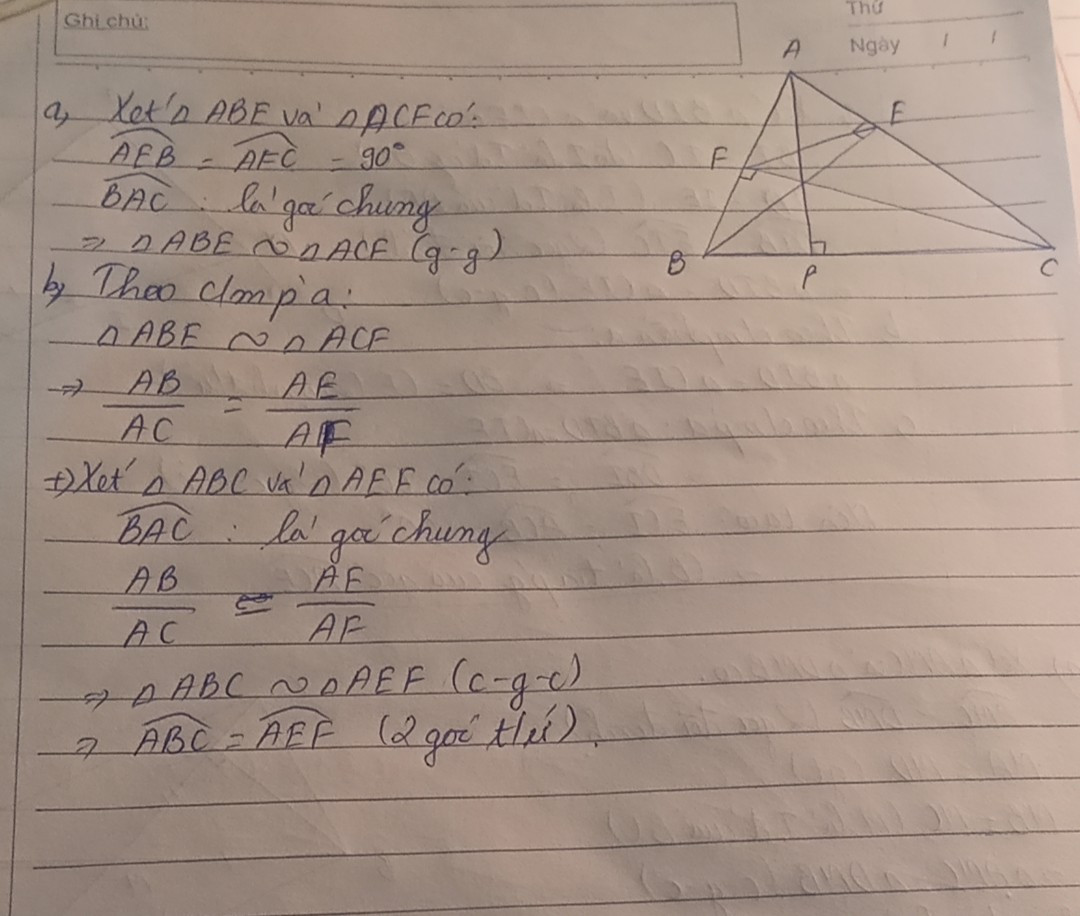 Ghi chú:
Thứ
Ngày / /
a, Xét △ ABE và △ ACF có:
AEB = AFC = 90°
BAC : là góc chung
=> △ ABE ~ △ ACF (g-g)
b, Theo cmp a:
△ ABE ~ △ ACF
=> AB/AC = AE/AF
+) Xét △ ABC và △ AEF có:
BAC : là góc chung
AB/AC = AE/AF
=> △ ABC ~ △ AEF (c-g-c)
=> ABC = AEF (2 góc t/ứ).
A
E
F
B
P
C